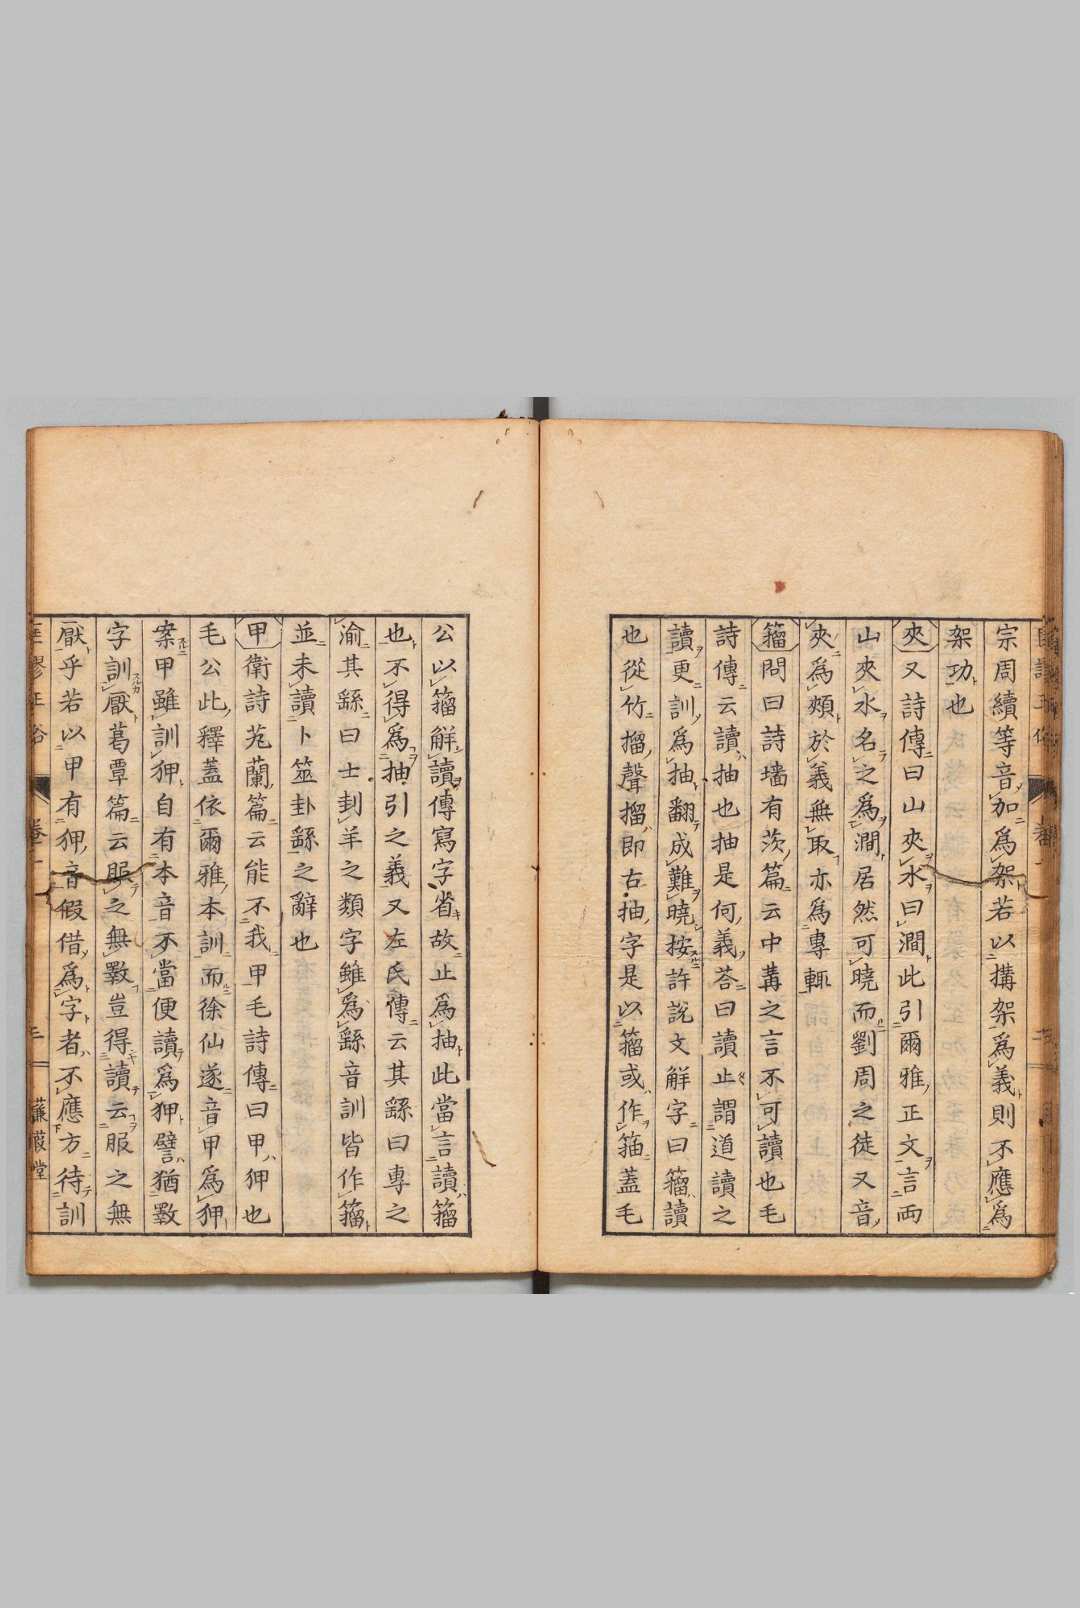 宗周續等音加為架若以搆架為義則不應為
架功也
夾又詩傳曰山夾水曰澗此引爾雅正文言両
山夾水名之為澗居然可曉而劉周之徒又音
夾為頰於義無取亦為專輙
籀問曰詩墻有茨篇云中冓之言不可讀也毛
詩傳云讀抽也抽是何義荅曰讀止謂道讀之
讀更訓為抽翻成難曉按許說文解字曰籀讀
也從竹㨨聲㨨即古抽字是以籀或作䈆蓋毛
公以籀解讀傳寫字省故止為抽此當言讀籀
也不得為抽引之義又左氏傳云其繇曰專之
渝其繇曰士刲羊之類字雖為繇音訓皆作籀
並未讀卜筮卦繇之辭也
甲衛詩芄蘭篇云能不我甲毛詩傳曰甲狎也
毛公此釋蓋依爾雅本訓而徐仙遂音甲為狎
案甲雖訓狎自有本音不當便讀為狎譬猶斁
字訓厭葛覃篇云服之無斁豈得讀云服之無
厭乎若以甲有狎音假借為字者不應方待訓
匡謬正俗
卷一
蒹葭堂